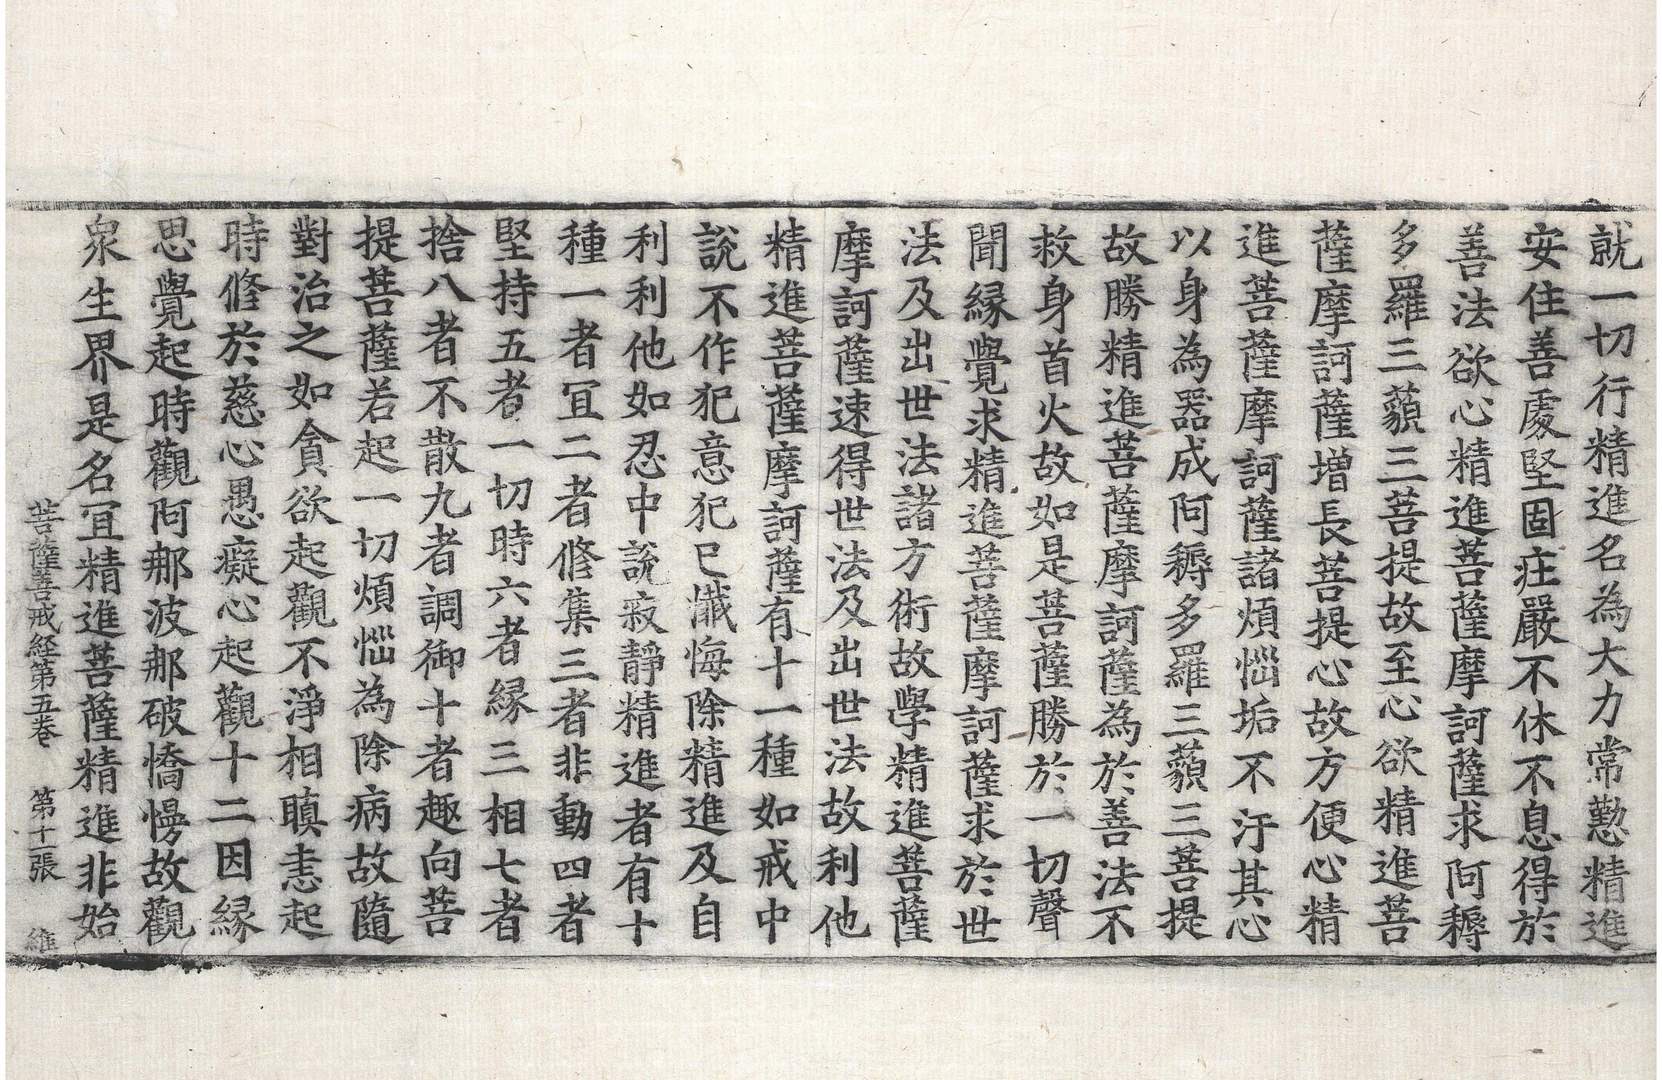 就一切行精進名為大力常懃精進
安住善處堅固莊嚴不休不息得於
善法欲心精進菩薩摩訶薩求阿耨
多羅三藐三菩提故至心欲精進菩
薩摩訶薩增長菩提心故方便心精
進菩薩摩訶薩諸煩惱垢不汙其心
以身為器成阿耨多羅三藐三菩提
故勝精進菩薩摩訶薩為於善法不
救身首火故如是菩薩勝於一切聲
聞縁覺求精進菩薩摩訶薩求於世
法及出世法諸方術故學精進菩薩
摩訶薩速得世法及出世法故利他
精進菩薩摩訶薩有十一種如戒中
說不作犯意犯已懺悔除精進及自
利利他如忍中說寂靜精進者有十
種一者冝二者修集三者非動四者
堅持五者一切時六者縁三相七者
捨八者不散九者調御十者趣向菩
提菩薩若起一切煩惱為除病故隨
對治之如貪欲起觀不淨相瞋恚起
時修於慈心愚癡心起觀十二因縁
思覺起時觀阿那波那破憍慢故觀
衆生界是名冝精進菩薩精進非始
菩薩善戒経第五卷 第十一張 維